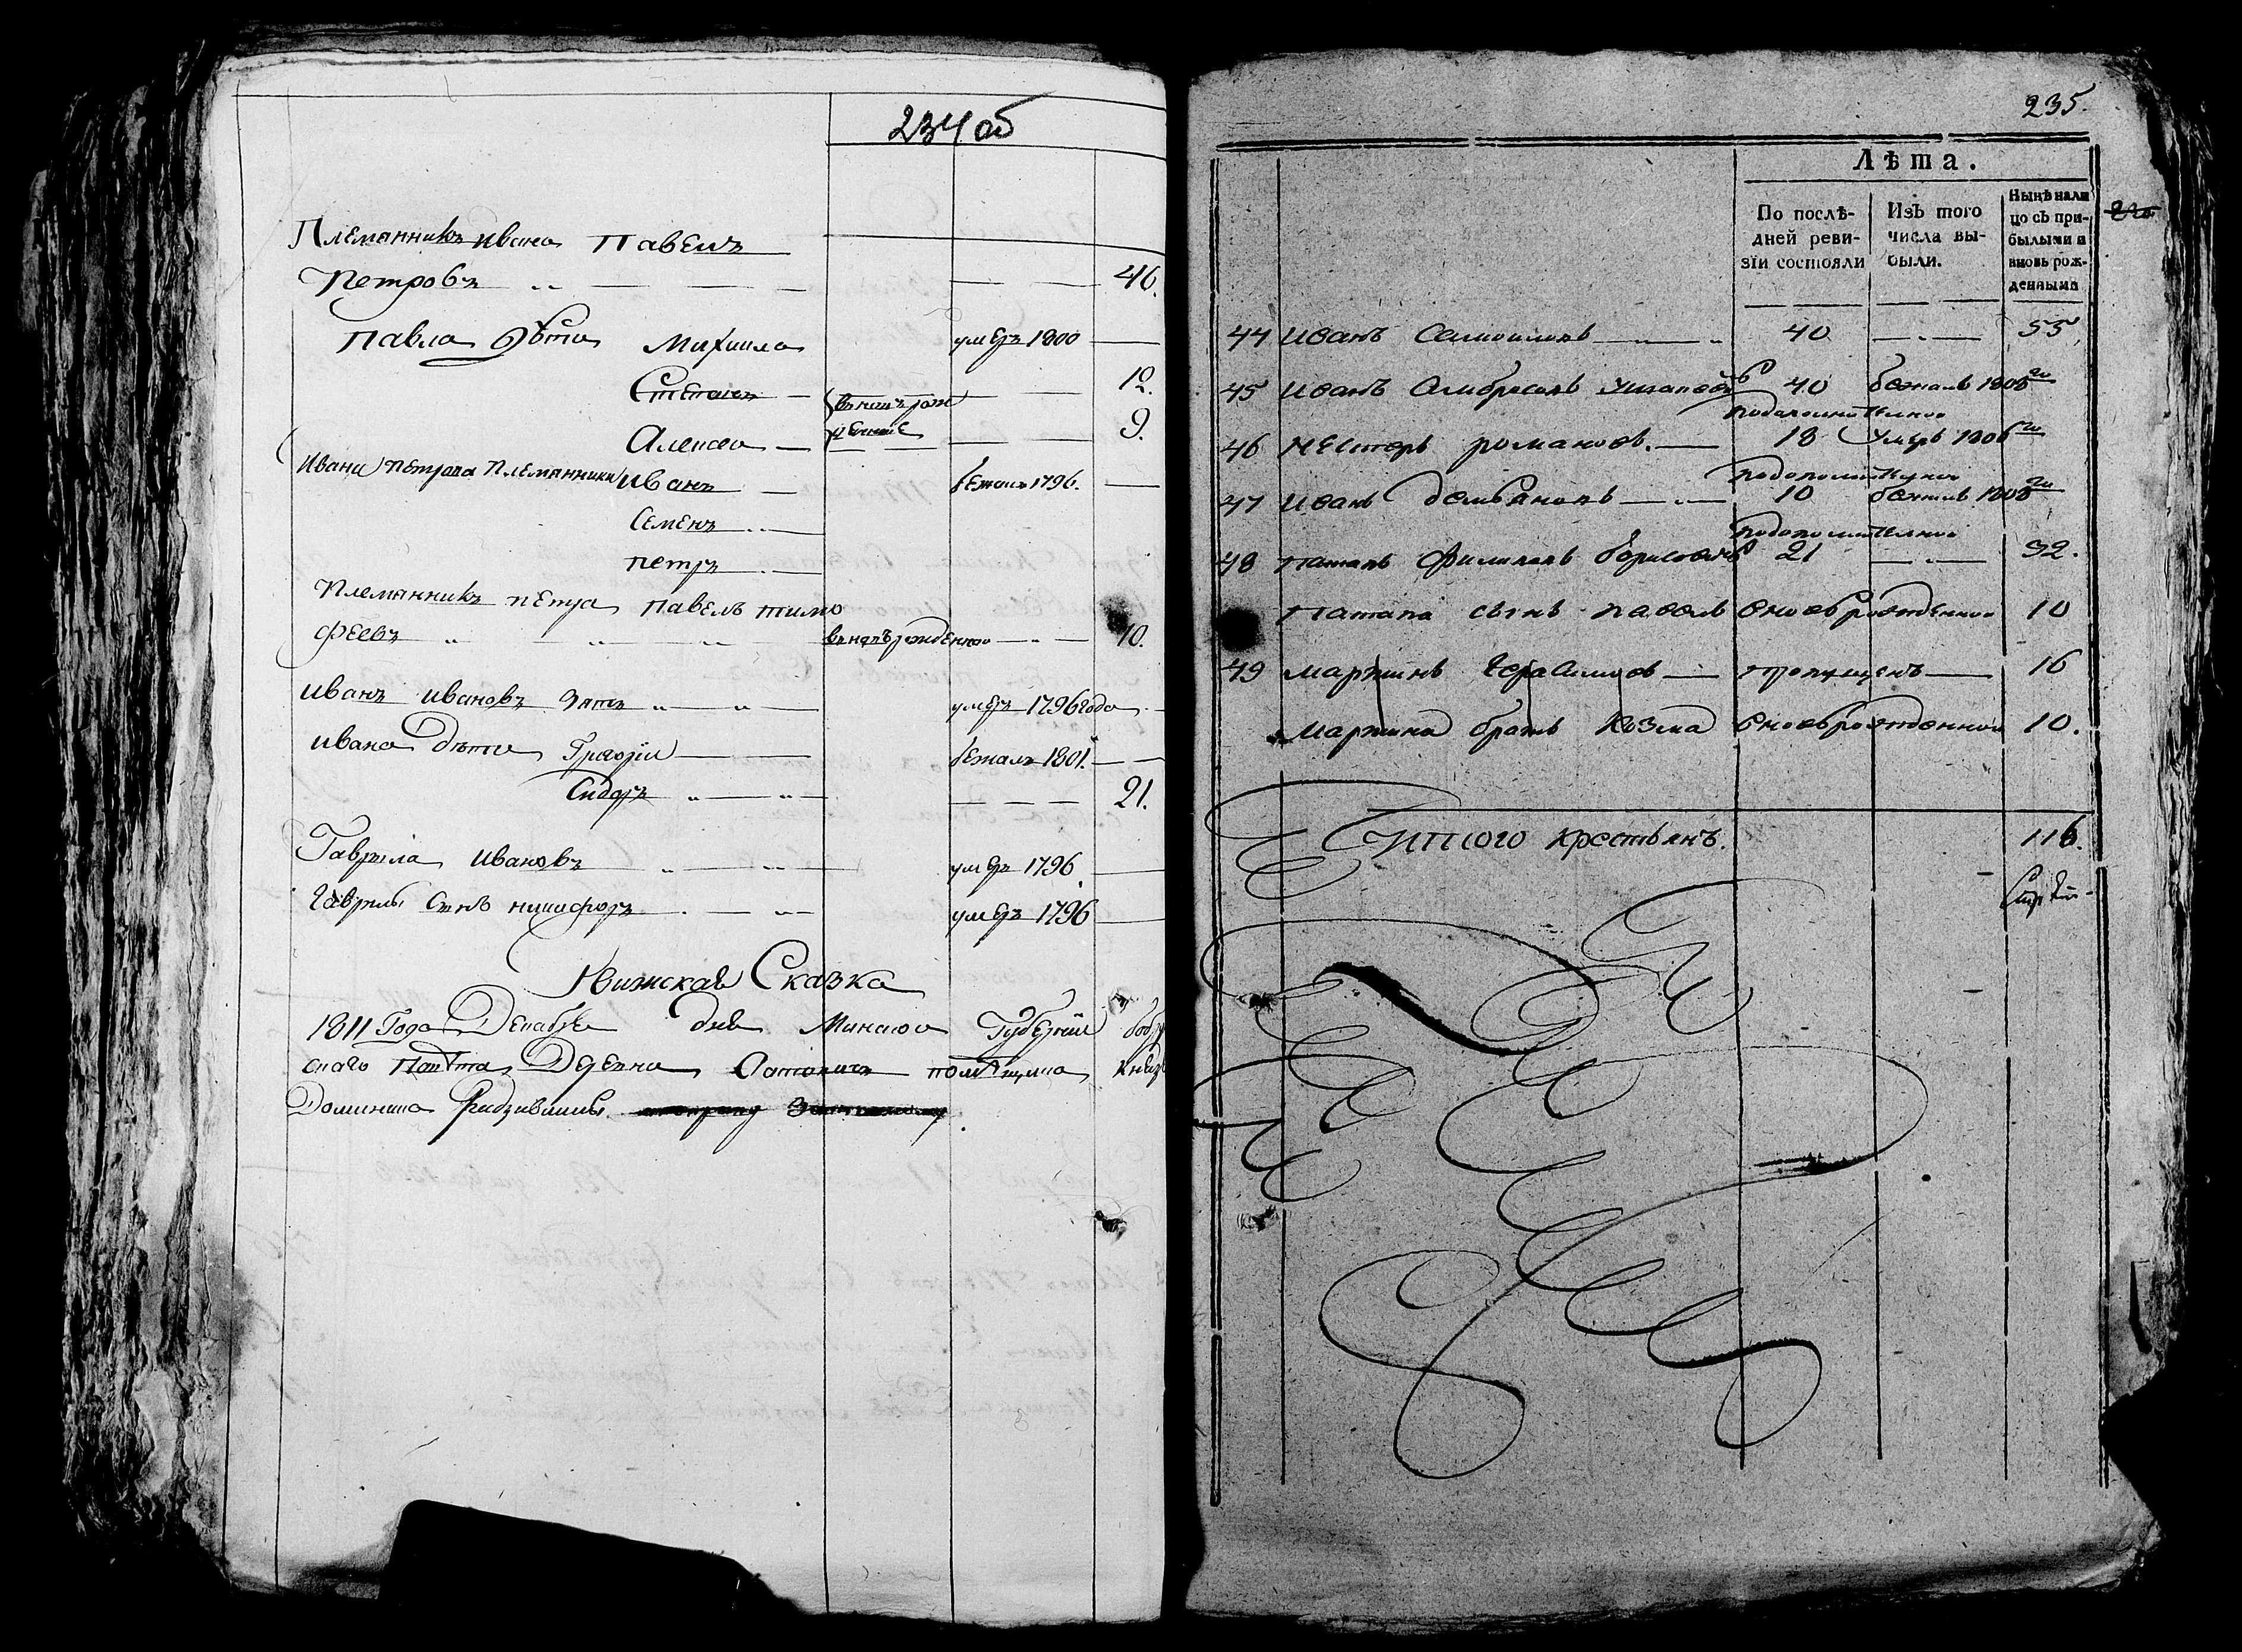 234 об
Племянникъ Ивана Павелъ
Петровъ 46.
Павла дѣти Михаила умеръ 1800
Степанъ 12.
вновь рож
Алексей денные 9.
Ивана Петрова племянники Иванъ бежалъ 1796.
Семенъ
Петръ
Племянникъ Петра Павелъ Тимо
феевъ вновьрожденной 10.
Иванъ Ивановъ зять умеръ 1796 года
Ивана дѣти Григорій бежалъ 1801.
Сидоръ 21.
Гаврила Ивановъ умеръ 1796
Гаврилы сынъ Никифоръ умеръ 1796
Сказка
1811 Года Декабря дня Минской Губерніи Бобру
скаго Повѣта Деревни помѣщика Князя
Доминика Радзивилы
235.
Лѣта.
По послѣ-
дней реви-
зіи состояли
Изъ того
числа вы-
были.
Нынѣ нали
цо съ при-
былыми и
вновь рож-
денными
44 Иванъ Самойловъ 40 55
45 Иванъ Амбросовъ 40 бежалъ 1808го
46 Нестеръ Романовъ. 18 умеръ 1806го
47 Иванъ Демьяновъ 10 бежалъ 1808го
48 Потапъ Филиповъ Борисовичъ 21 32.
Потапа сынъ Павелъ вновьрожденной 10
49 Мартинъ Герасимовъ пропущенъ 16
Мартина братъ Козма вновьрожденной 10.
Итого крестьянъ. 116.